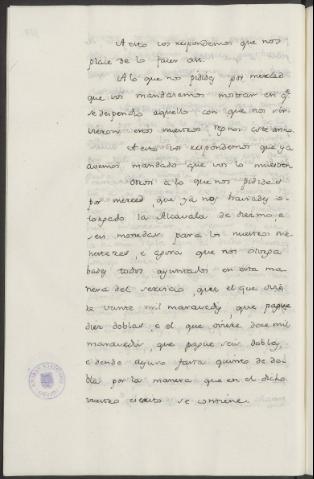 A esto vos respondemos que nos
plase de lo faser assi.
A lo que nos pidides por merced
que vos mandaremos mostrar en que
se despendio aquello con que nos sir-
vieron estos nuestros regnos este anno.
A esto vos respondemos que ya
avemos mandado que vos lo muestren
Otrosi a lo que nos pidides
por merced que ya nos aviades o-
torgado la Alcavala de diezmo, e
seis monedas para los nuestros me-
nesteres, e agora que nos otorga-
bades todos ayuntados en esta ma-
nera del servicio, que el que oviere
de veinte mil maravedis, que pague
diez doblas, e el que oviere doce mil
maravedis, que pague seis doblas,
e dende ayuso fasta quinto de do-
bla por la manera que en el dicho
vuestro escrito se contiene.